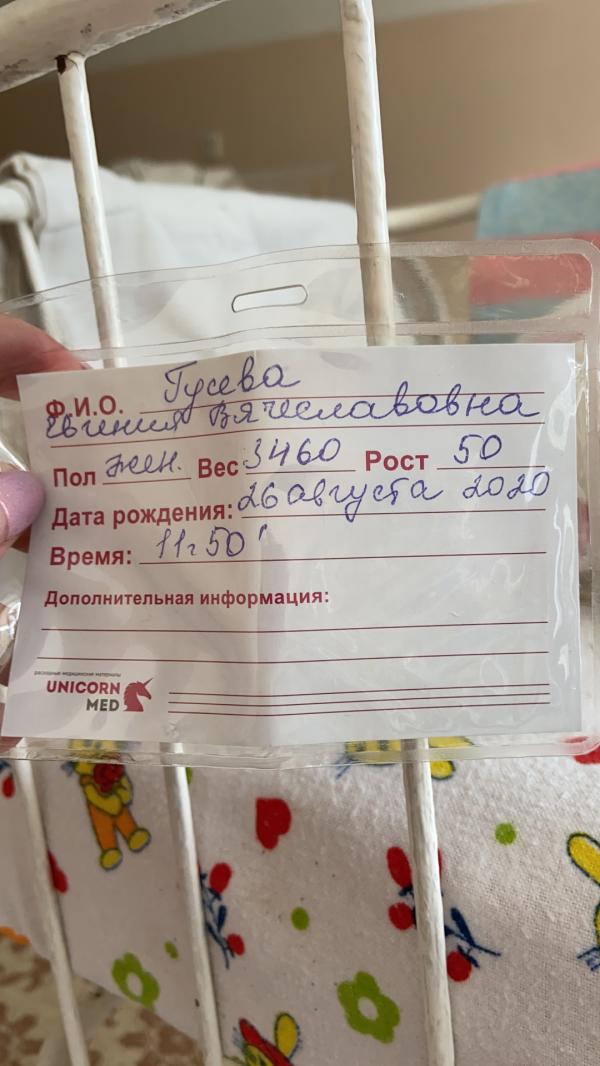 Ф.И.О. Гусева
Евгения Вячеславовна
Пол жен. Вес 3460 Рост 50
Дата рождения: 26 августа 2020
Время: 11г 50'
Дополнительная информация:
расходные медицинские материалы
UNICORN
MED